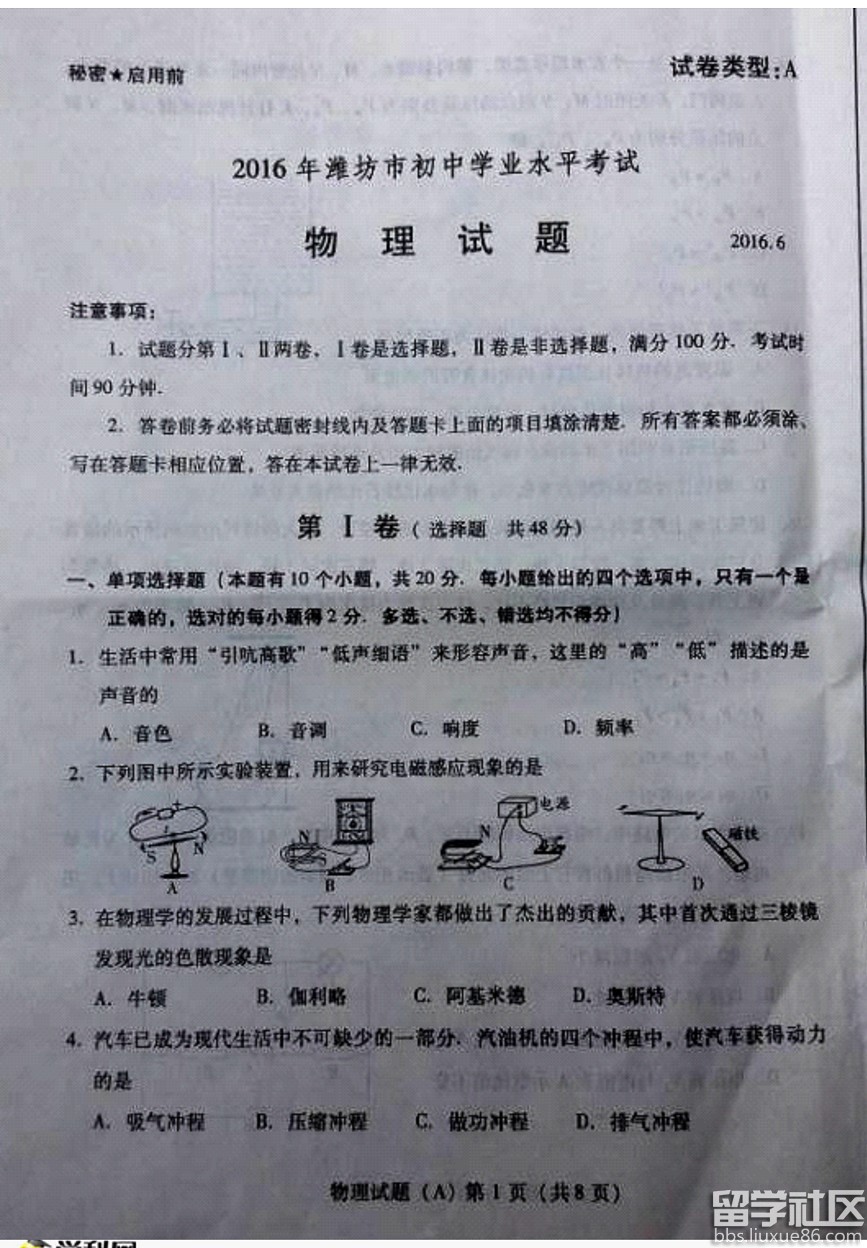 秘密★启用前
试卷类型:A
2016年潍坊市初中学业水平考试
物 理 试 题
2016.6
注意事项:
1. 试题分第Ⅰ、Ⅱ两卷,Ⅰ卷是选择题,Ⅱ卷是非选择题,满分100分.考试时
间90分钟.
2. 答卷前务必将试题密封线内及答题卡上面的项目填涂清楚.所有答案都必须涂、
写在答题卡相应位置,答在本试卷上一律无效.
第Ⅰ卷(选择题 共48分)
一、单项选择题(本题有10个小题,共20分.每小题给出的四个选项中,只有一个是
正确的,选对的每小题得2分.多选、不选、错选均不得分)
1. 生活中常用“引吭高歌”“低声细语”来形容声音,这里的“高”“低”描述的是
声音的
A. 音色 B. 音调 C. 响度 D. 频率
2. 下列图中所示实验装置,用来研究电磁感应现象的是
电源
S N N N 磁铁
A B C D
3. 在物理学的发展过程中,下列物理学家都做出了杰出的贡献,其中首次通过三棱镜
发现光的色散现象是
A. 牛顿 B. 伽利略 C. 阿基米德 D. 奥斯特
4. 汽车已成为现代生活中不可缺少的一部分.汽油机的四个冲程中,使汽车获得动力
的是
A. 吸气冲程 B. 压缩冲程 C. 做功冲程 D. 排气冲程
物理试题(A)第1页(共8页)
留学社区
bbs.liuxue86.com